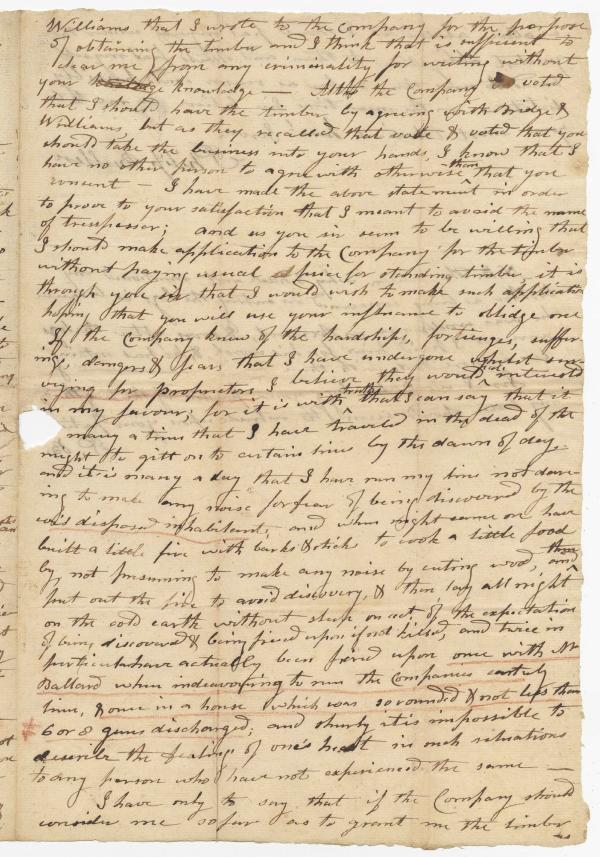 Williams that I wrote to the Company for the purpose
of obtaining the timber and I think that is sufficient to
clear me from any criminality for writing without
your knowledge — Altho the Company voted
that I should have the timber by agreeing with Bridge &
Williams, but as they recalled that vote & voted that you
should take the business into your hands, I know that I
have no other person to agree with otherwise than that you
consent — I have made the above statement in order
to prove to your satisfaction that I meant to avoid the name
of tresspasser; and as you sir seem to be willing that
I should make application to the Company for the timber
without paying usual price for standing timber, it is
through you sir that I would wish to make such application
hoping that you will use your influance to oblidge one
If the Company knew of the hardships, fortieuges, suffer
ings, dangers & fears that I have undergone whilst sur-
veying for proprietors I believe they would feel interested
in my favour; for it is with truth that I can say that it
many a time that I have traveled in the dead of the
night to gitt on to certain lines by the dawn of day
and it is many a day that I have run my line not dare-
ing to make any noise for fear of being discovered by the
disposed inhabitent; and when night came on have
built a little fire with barks & sticks to cook a little food
by, not presuming to make any noise by cuting wood, then
put out the fire to avoid discovery, & then lay all night
on the cold earth without sleep on act of the expectation
of being discovered & being fired upon if not killed, and twice in
particular have actually been fired upon once with Mr
Ballard when indeavouring to run the Companies
line, & once in a house which was sorounded & not less than
6 or 8 guns discharged; and shurly it is impossible to
describe the fealings of one's heart in such situations
to any person who have not experienced the same —
I have only to say that if the Company should
consider me so far as to grant me the timber
as